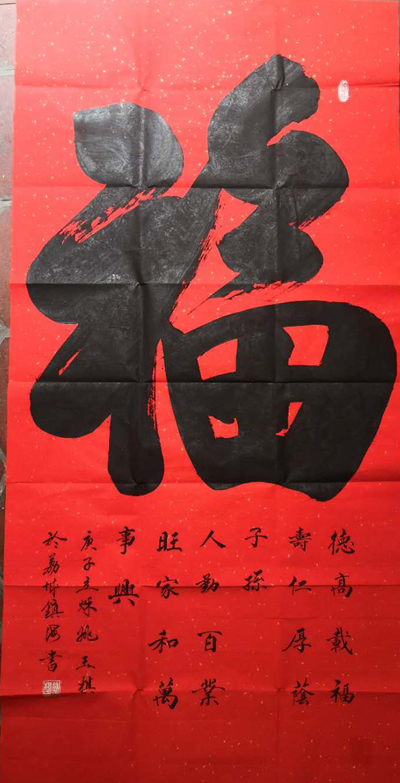 福
德高載福
壽仁厚蔭
子孫
人勤百業
旺家和萬
事興
庚子立秋姚玉棋
於荔城鎮海書